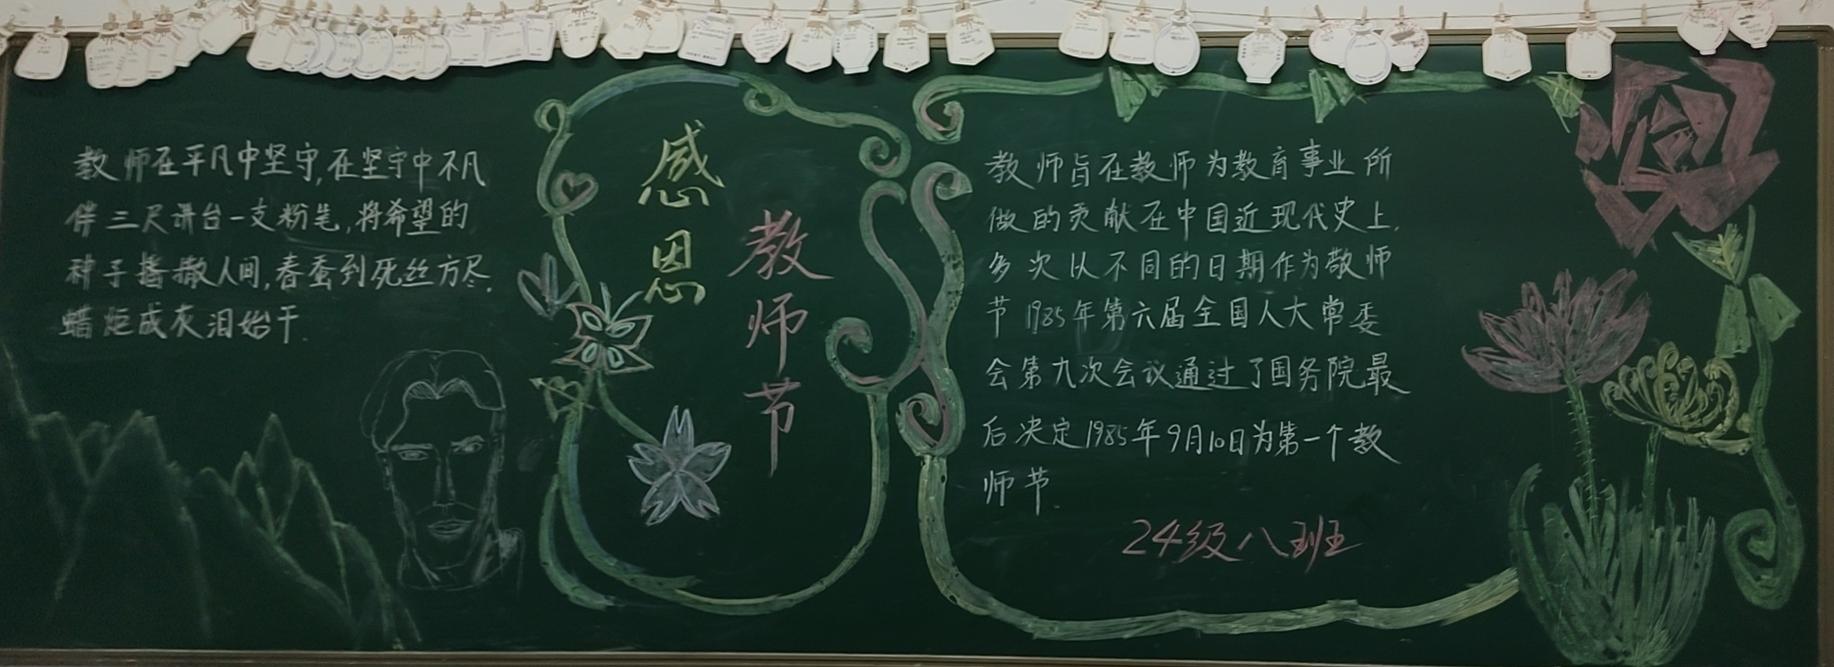 教师在平凡中坚守,在坚守中不凡
伴三尺讲台一支粉笔,将希望的
种子播撒人间,春蚕到死丝方尽.
蜡炬成灰泪始干.
感恩
教师节
教师旨在教师为教育事业所
做的贡献在中国近现代史上,
多次以不同的日期作为教师
节1985年第六届全国人大常委
会第九次会议通过了国务院最
后决定1985年9月10日为第一个教
师节
24级八班